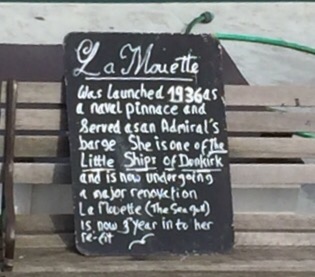 La Mouette
Was launched 1936 as
a naval pinnace and
Served as an Admiral's
barge She is one of The
Little Ships of Dunkirk
and is now undergoing
a major renovation
La Mouette (The Sea gull)
Is now 3 year in to her
re-fit